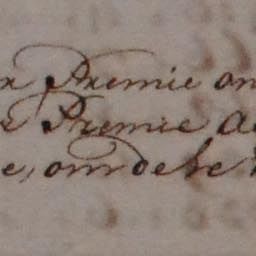 Premie on
Premie a
e, om dese